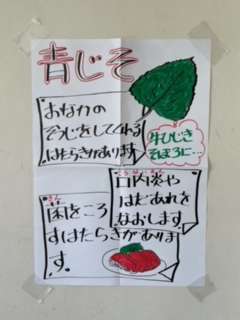 青じそ
おなかの
そうじをしてくれる
はたらきがあります
牛ひじき
そぼろに…
口内炎や
はだあれを
なおします。
菌をころ
すはたらきがありま
す。